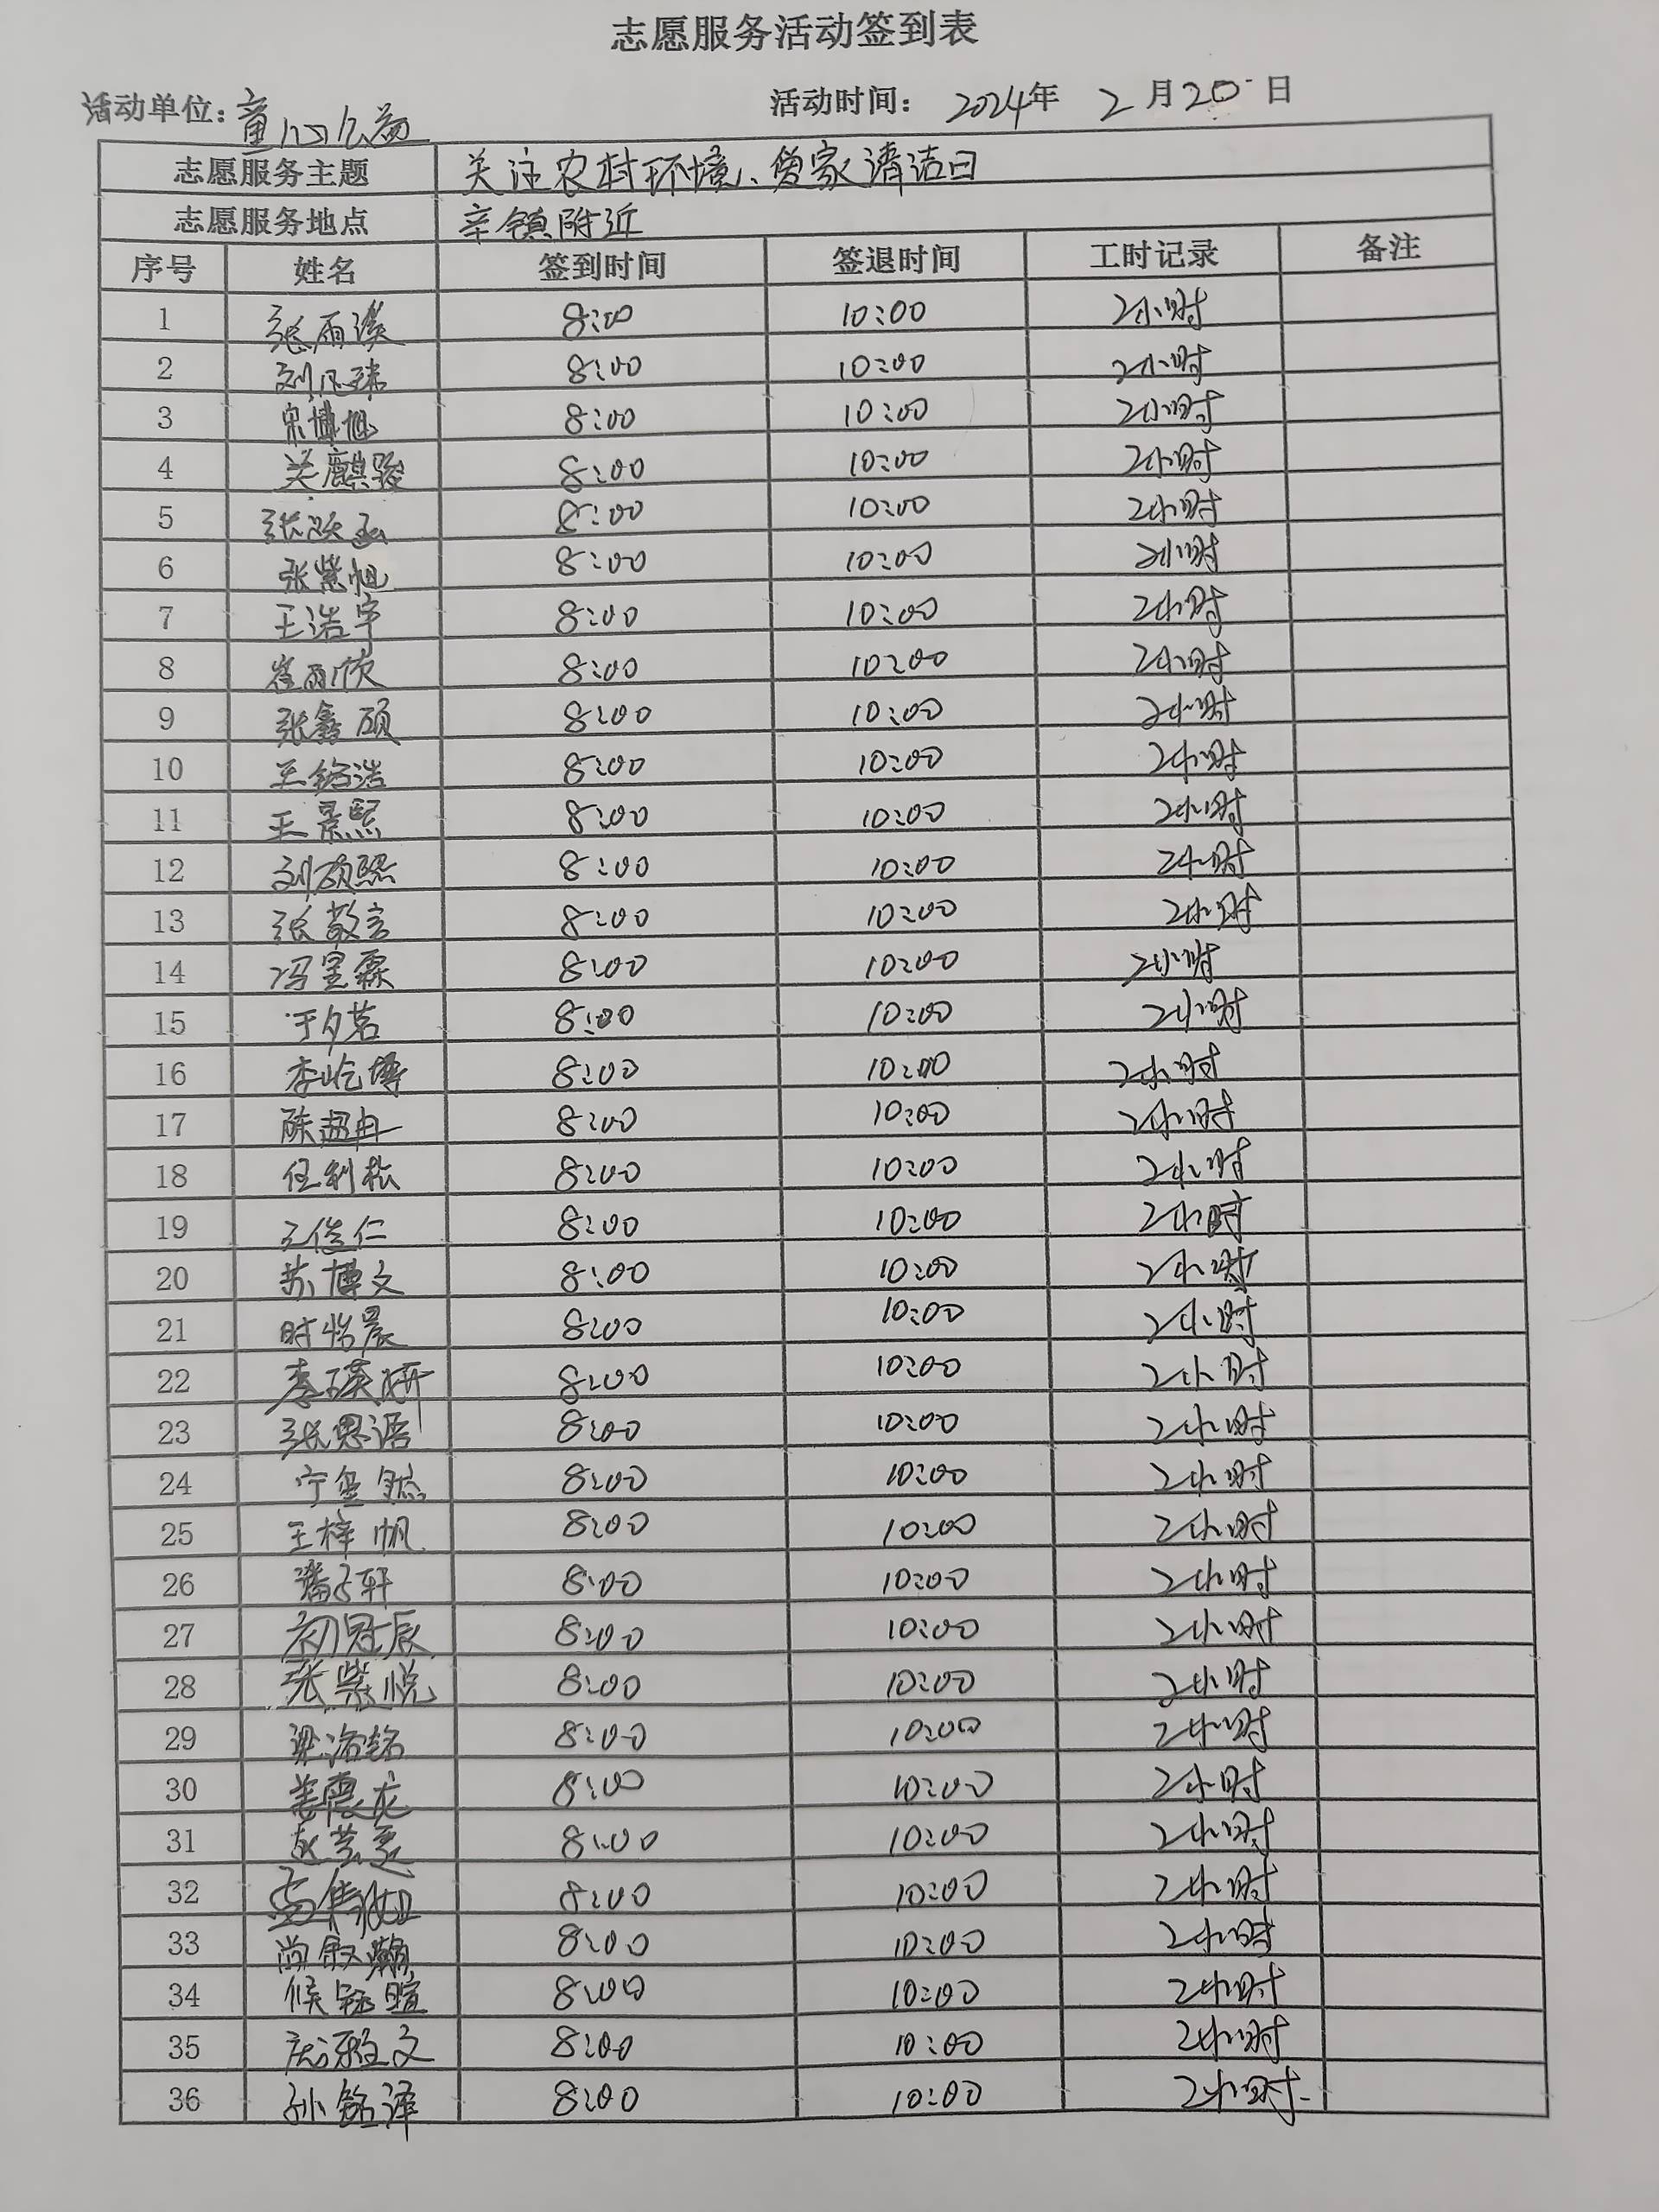 志愿服务活动签到表
活动单位:童心公益 活动时间: 2024年 2月20日
志愿服务主题 关注农村环境、 家清洁日
志愿服务地点 辛镇附近
序号 姓名 签到时间 签退时间 工时记录 备注
1 张雨 8:00 10:00 2小时
2 刘 8:00 10:00 2小时
3 宋博旭 8:00 10:00 2小时
4 关麒骏 8:00 10:00 2小时
5 张 8:00 10:00 2小时
6 张紫恒 8:00 10:00 2小时
7 王浩宇 8:00 10:00 2小时
8 崔雨欣 8:00 10:00 2小时
9 张鑫硕 8:00 10:00 2小时
10 王铭浩 8:00 10:00 2小时
11 王景熙 8:00 10:00 2小时
12 刘硕熙 8:00 10:00 2小时
13 张敬言 8:00 10:00 2小时
14 冯昱霖 8:00 10:00 2小时
15 于夕茗 8:00 10:00 2小时
16 李屹博 8:00 10:00 2小时
17 陈超冉 8:00 10:00 2小时
18 任利松 8:00 10:00 2小时
19 王俊仁 8:00 10:00 2小时
20 苏博文 8:00 10:00 2小时
21 时怡晨 8:00 10:00 2小时
22 李瑛妍 8:00 10:00 2小时
23 张思语 8:00 10:00 2小时
24 宁 8:00 10:00 2小时
25 王梓帆 8:00 10:00 2小时
26 潘子轩 8:00 10:00 2小时
27 初冠辰 8:00 10:00 2小时
28 张紫悦 8:00 10:00 2小时
29 梁洛铭 8:00 10:00 2小时
30 姜震龙 8:00 10:00 2小时
31 赵芸 8:00 10:00 2小时
32 8:00 10:00 2小时
33 尚叙瀚 8:00 10:00 2小时
34 候钰暄 8:00 10:00 2小时
35 文 8:00 10:00 2小时
36 孙铭泽 8:00 10:00 2小时